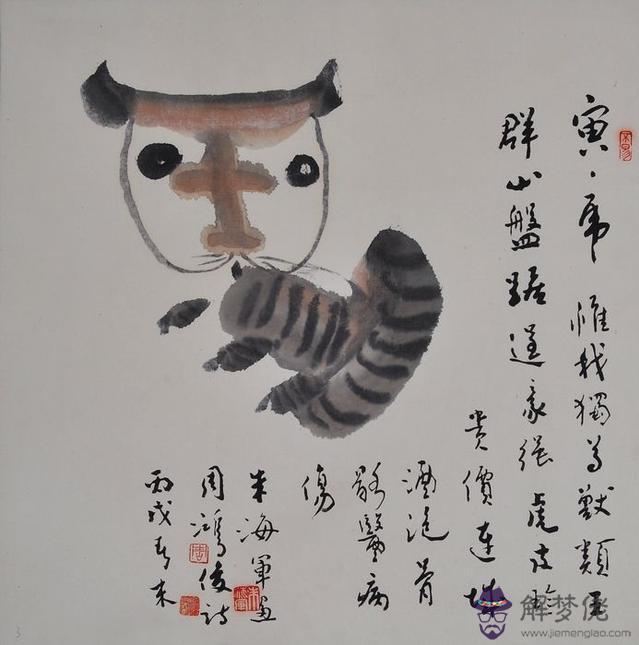 寅、虎 惟我獨尊獸類王
群山盤踞逞豪强 虎皮珍
贵價連城
酒泡骨
骸醫病
傷
朱海軍画
周鸿俊诗
丙戌春末
3
解梦佬
www.jiemenglao.com